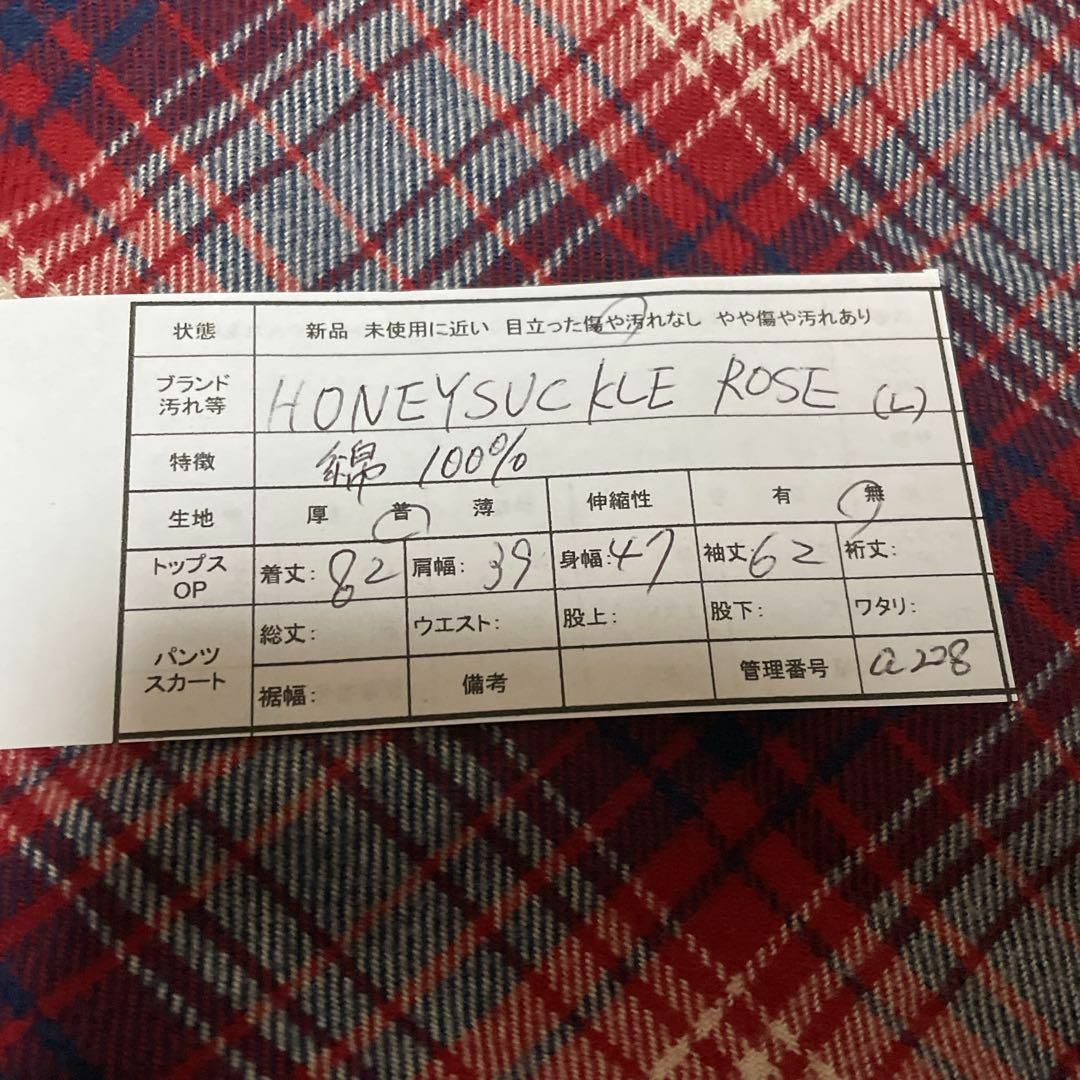 状態 新品 未使用に近い 目立った傷や汚れなし やや傷や汚れあり
ブランド
汚れ等 HONEYSUCKLE ROSE (L)
特徴 綿 100%
生地 厚 普 薄 伸縮性 有 無
トップス
OP 着丈: 82 肩幅: 39 身幅: 47 袖丈: 62 裄丈:
パンツ
スカート 総丈: ウエスト: 股上: 股下: ワタリ:
裾幅: 備考 管理番号 a228